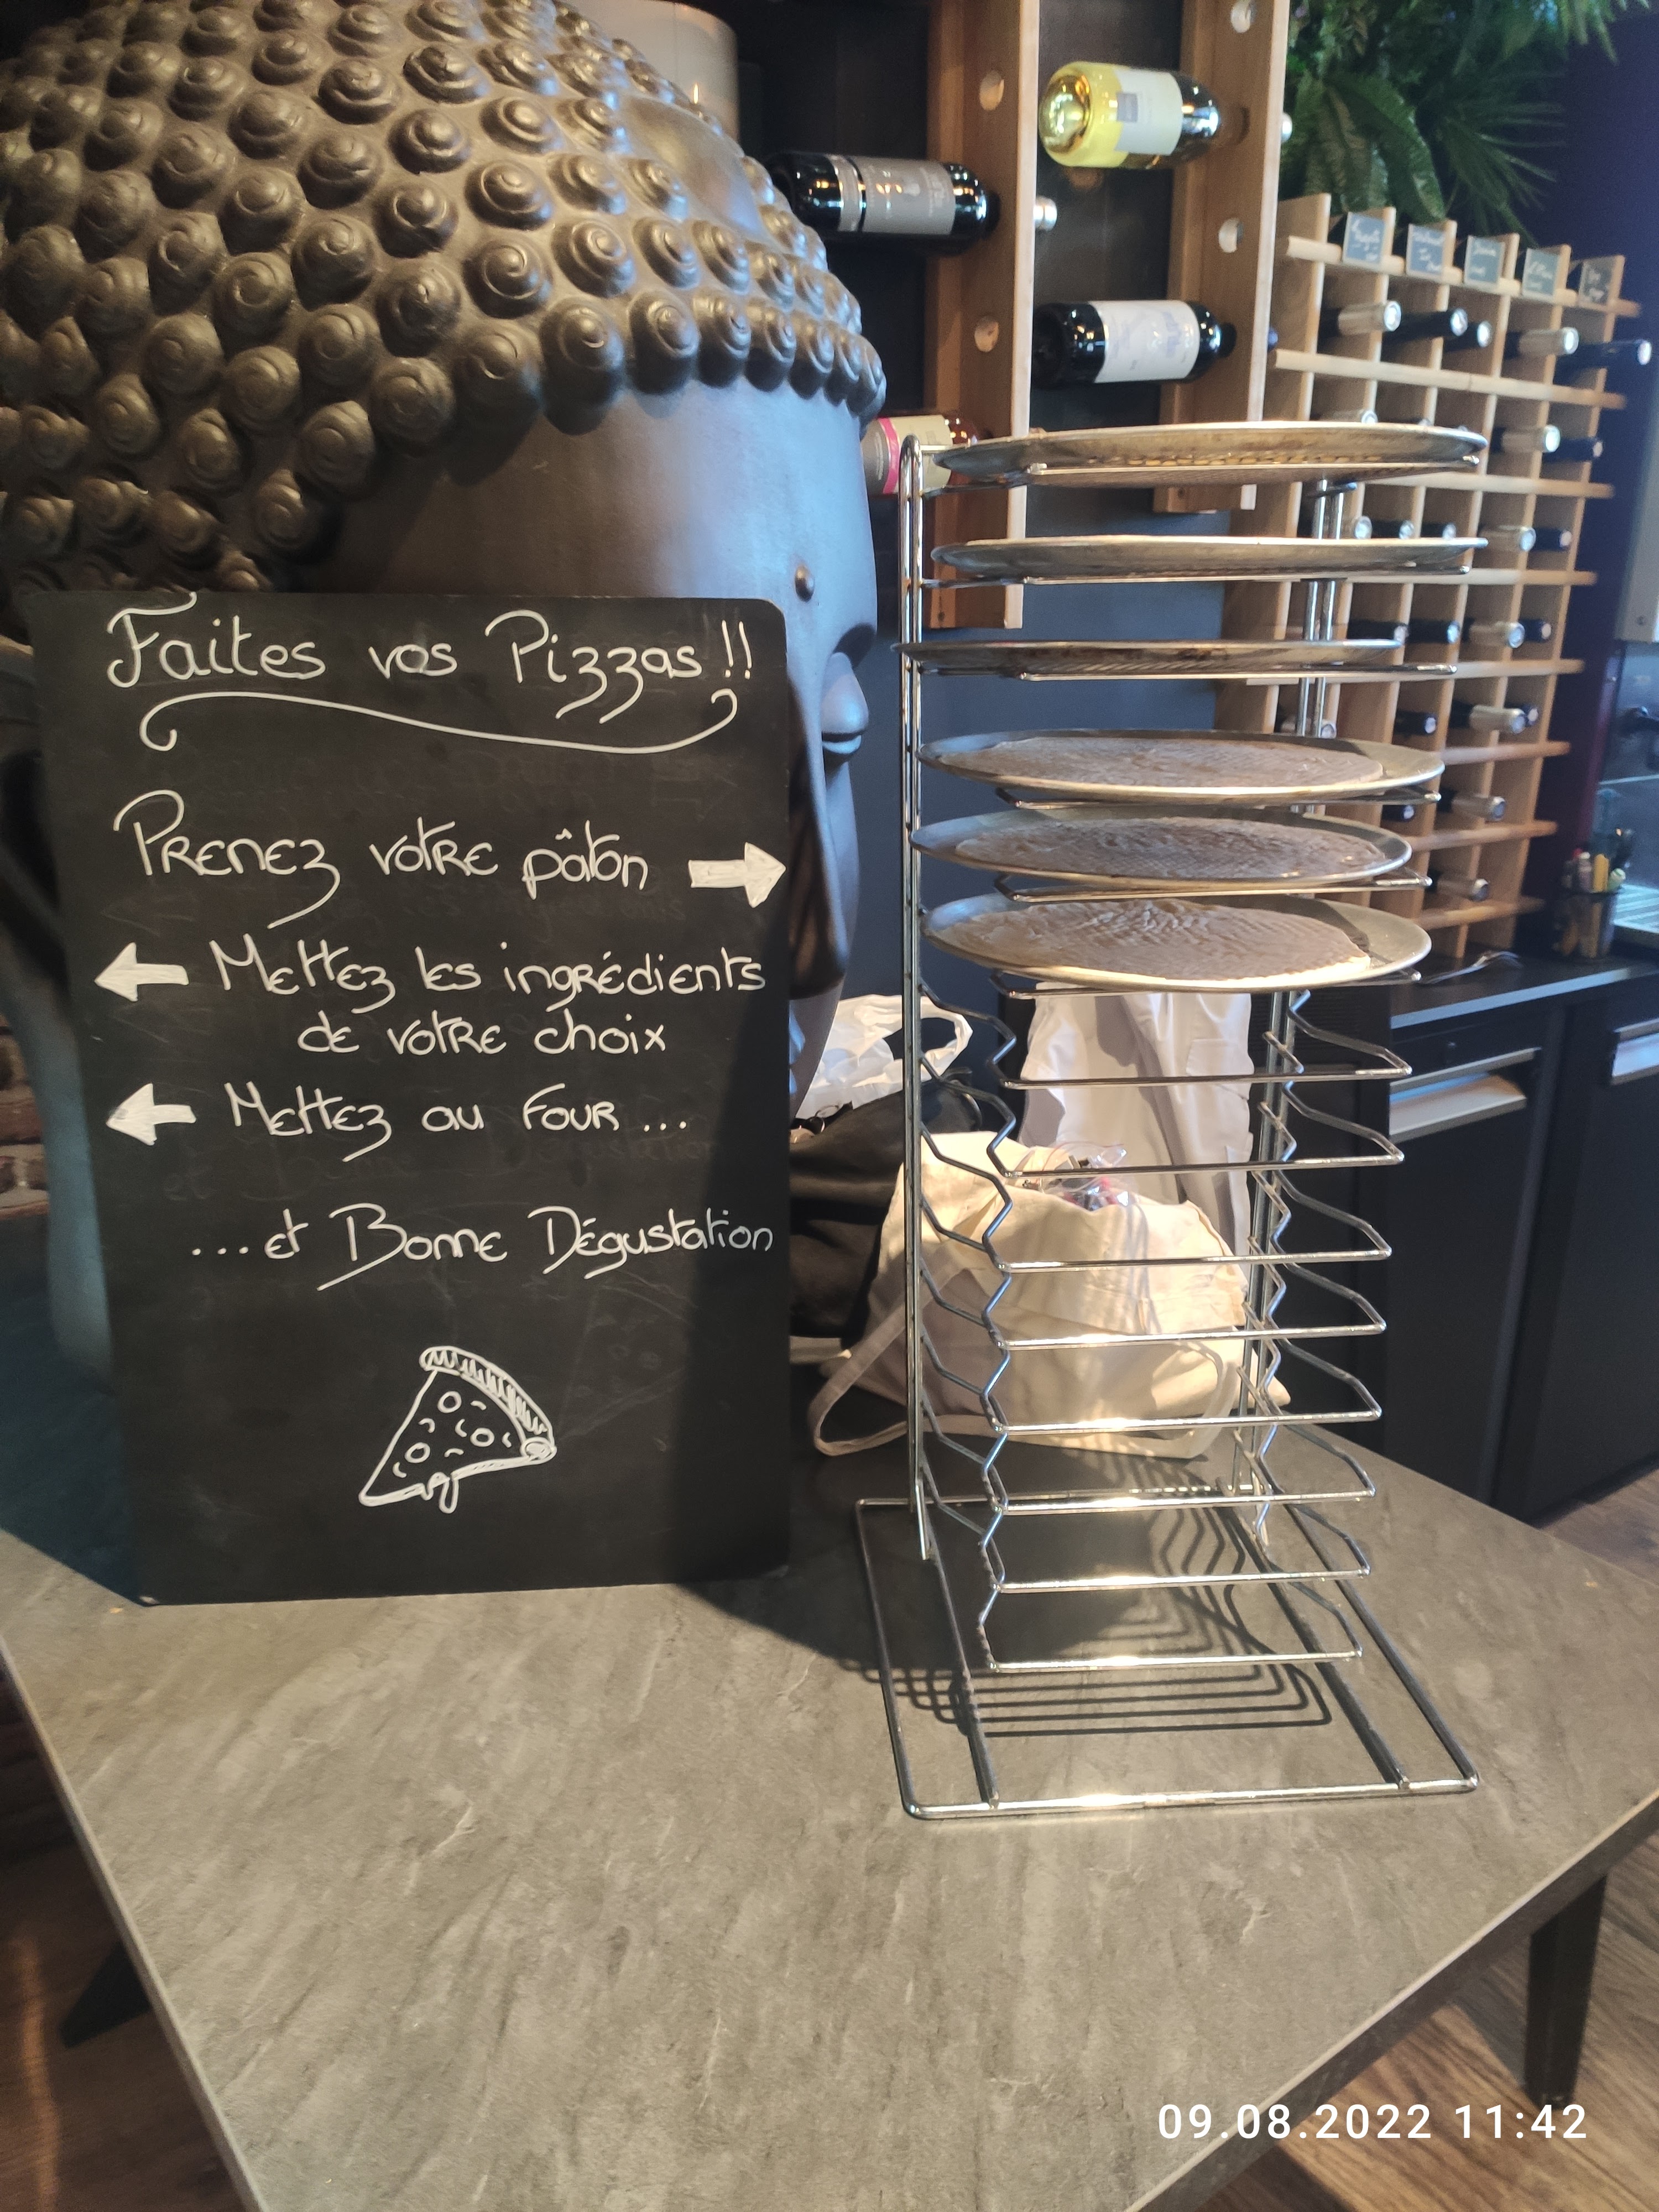 Faites vos Pizzas !!
Prenez votre pâton
Mettez les ingrédients
de votre choix
Mettez au four ...
... et Bonne Dégustation
09.08.2022 11:42